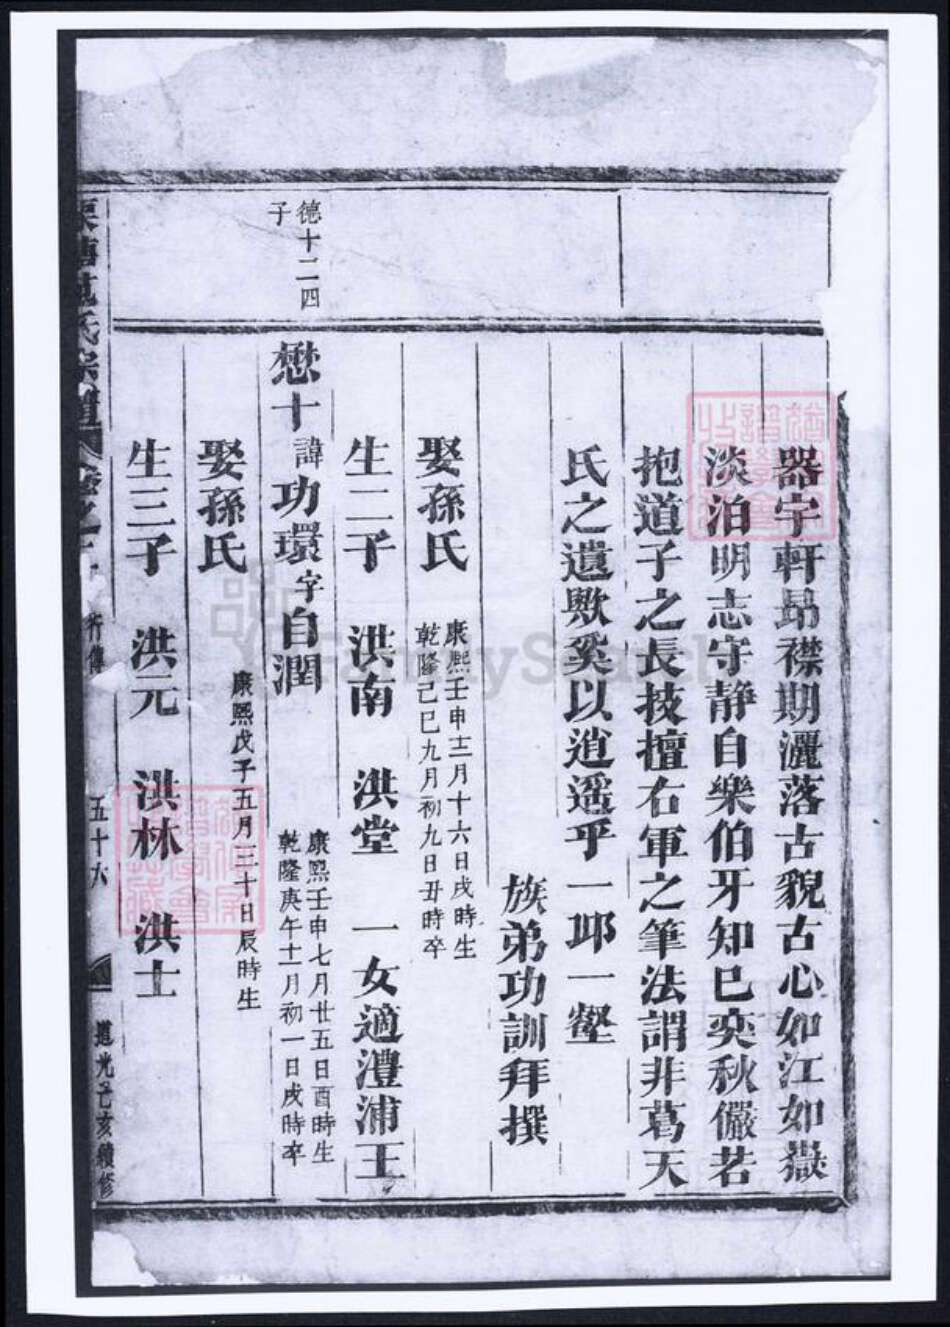 器宇軒昂襟期灑落古貌古心如江如嶽
淡泊明志守靜自樂伯牙知已奕秋儼若
抱道子之長技擅右軍之筆法謂非葛天
氏之遺歟奚以逍遥乎一邱一壑
族弟功訓拜撰
娶孫氏
康熙壬申十二月十六日戌時生
乾隆己巳九月初九日丑時卒
生二子 洪南 洪堂 一女適澧浦王
德十二四
子
懋十諱功環字自潤
康熙壬申七月廿五日酉時生
乾隆庚午十一月初一日戌時卒
娶孫氏 康熙戊子五月三十日辰時生
生三子 洪元 洪林 洪士
氏宗譜 卷之十 行傳 五十六 道光己亥續修
FamilySearch